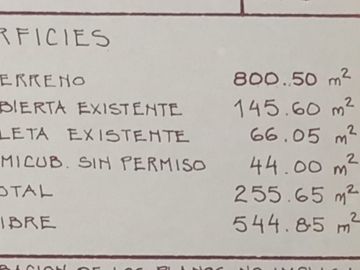 RFICIES
ERRENO 800.50 m²
BIERTA EXISTENTE 145.60 m²
LETA EXISTENTE 66.05 m²
MICUB. SIN PERMISO 44.00 m²
OTAL 255.65 m²
IBRE 544.85 m²